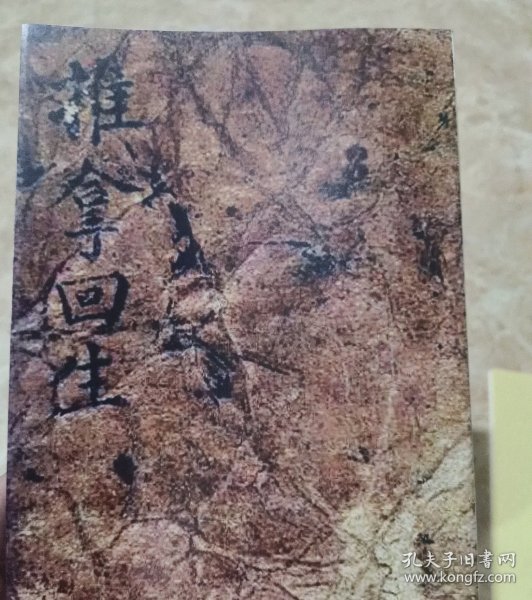 推拿回生
孔夫子旧书网
www.kongfz.com